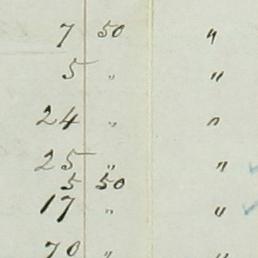 7 50 "
5 " "
24 " "
25 " "
5 50
17 " "
70 " "